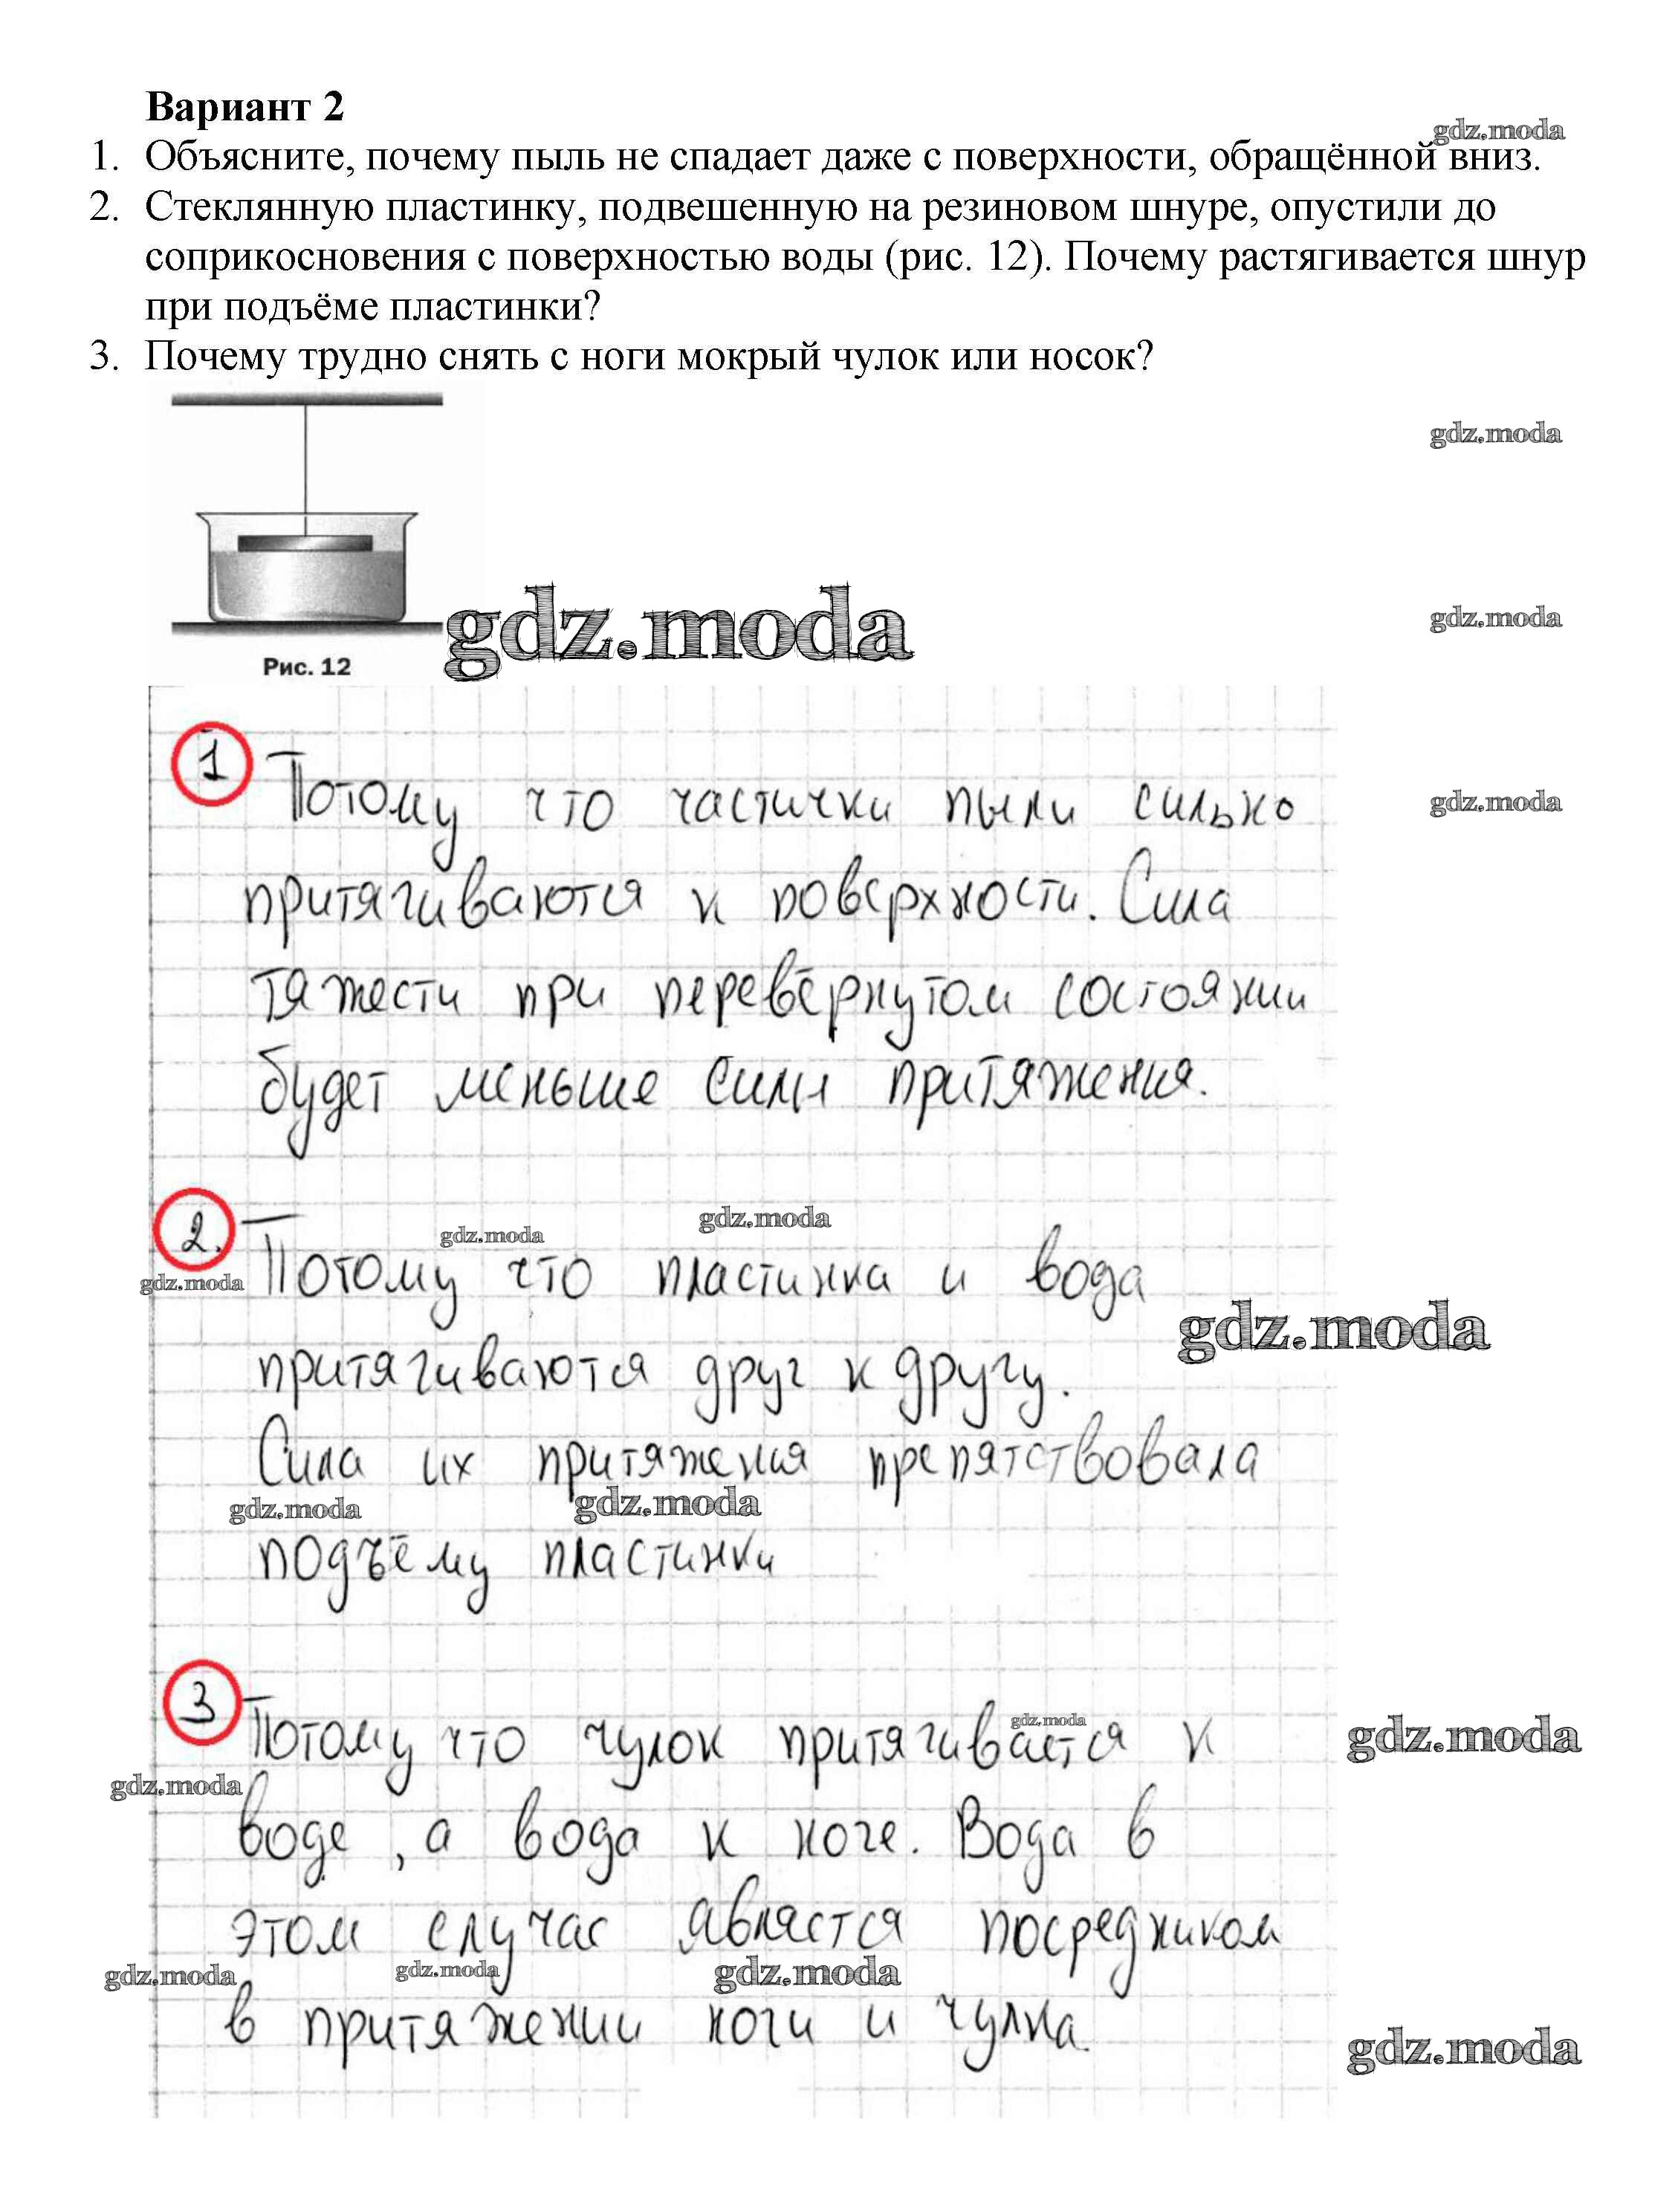 Вариант 2
gdz.moda
1. Объясните, почему пыль не спадает даже с поверхности, обращённой вниз.
2. Стеклянную пластинку, подвешенную на резиновом шнуре, опустили до
соприкосновения с поверхностью воды (рис. 12). Почему растягивается шнур
при подъёме пластинки?
3. Почему трудно снять с ноги мокрый чулок или носок?
gdz.moda
gdz.moda
gdz.moda
Рис. 12
1 Потому что частички пыли сильно
gdz.moda
притягиваются к поверхности. Сила
тяжести при перевёрнутом состоянии
будет меньше силы притяжения.
gdz.moda
gdz.moda
2. Потому что пластинка и вода
gdz.moda
gdz.moda
притягиваются друг к другу.
Сила их притяжения препятствовала
gdz.moda
gdz.moda
подъёму пластинки
3 Потому что чулок притягивается к
gdz.moda
gdz.moda
gdz.moda
воде, а вода к ноге. Вода в
этом случае является посредником
gdz.moda
gdz.moda
gdz.moda
в притяжении ноги и чулка.
gdz.moda